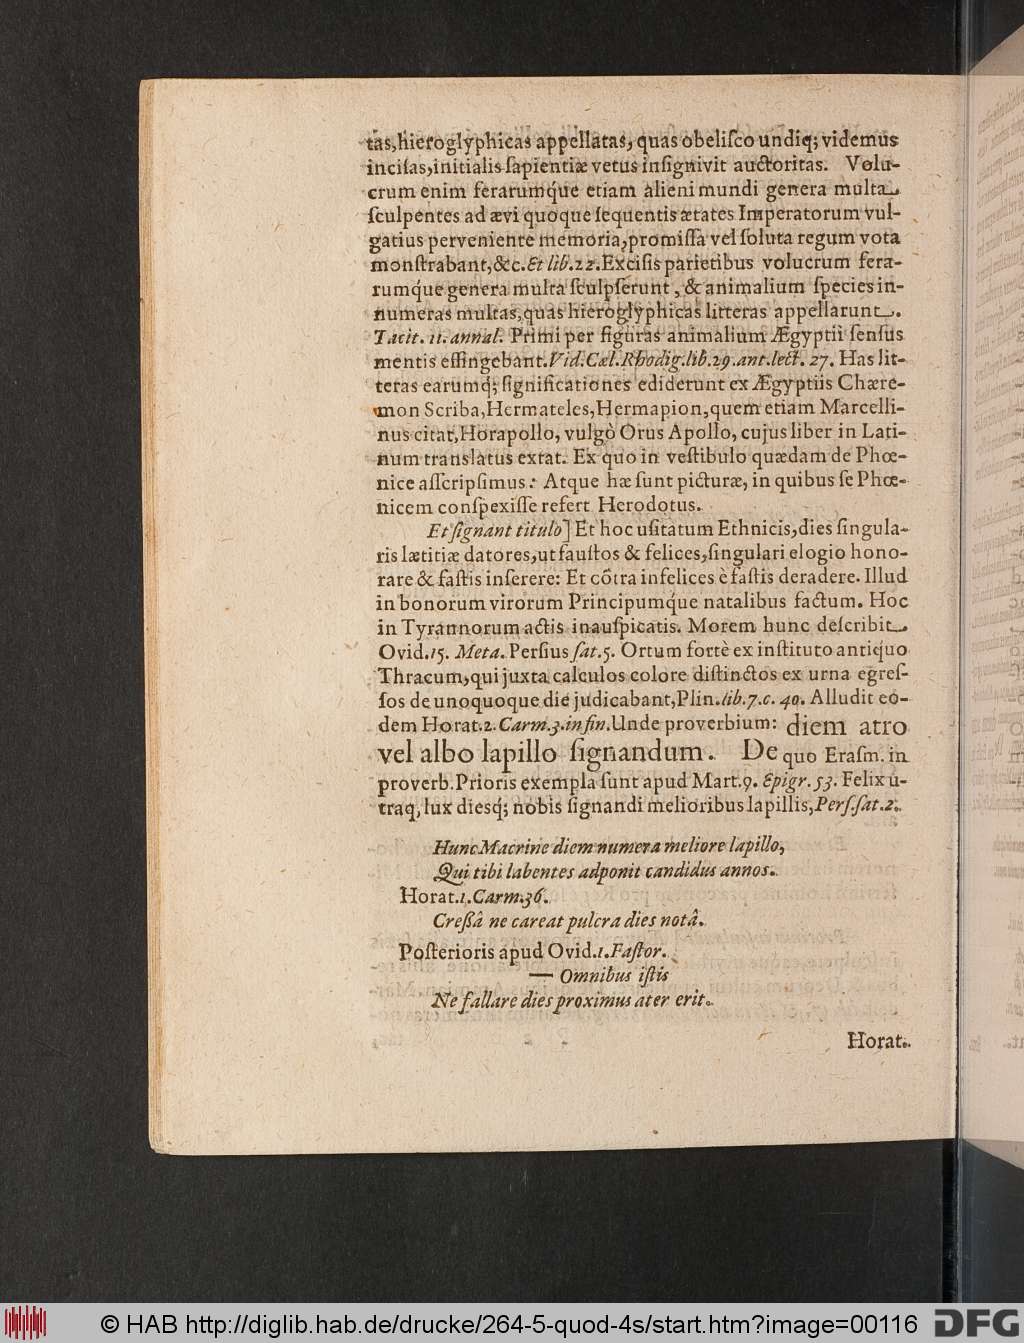 tas,hieroglyphicas appellatas, quas obeliſco undiq; videmus
inciſas,initialis ſapientiæ vetus inſignivit auctoritas. Volu-
crum enim ferarumq́ue etiam alieni mundi genera multa
ſculpentes ad ævi quoque ſequentis ætates Imperatorum vul-
gatius perveniente memoria,promiſſa vel ſoluta regum vota
monſtrabant,&c.Et lib.22.Exciſis parietibus volucrum fera-
rumq́ue genera multa ſculpſerunt, & animalium ſpecies in-
numeras multas,quas hieroglyphicas litteras appellarunt.
Tacit. 11. annal. Primi per figuras animalium Ægyptii ſenſus
mentis effingebant.Vid.Cæl.Rhodig.lib.29.ant.lect. 27. Has lit-
teras earumq́; ſignificationes ediderunt ex Ægyptiis Chære-
mon Scriba,Hermateles,Hermapion,quem etiam Marcelli-
nus citat,Horapollo, vulgò Orus Apollo, cujus liber in Lati-
num translatus extat. Ex quo in veſtibulo quædam de Phœ-
nice aſſcripſimus: Atque hæ ſunt picturæ, in quibus ſe Phœ-
nicem conſpexiſſe refert Herodotus.
Et ſignant titulo] Et hoc uſitatum Ethnicis,dies ſingula-
ris lætitiæ datores,ut fauſtos & felices,ſingulari elogio hono-
rare & faſtis inſerere: Et cõtra infelices è faſtis deradere. Illud
in bonorum virorum Principumq́ue natalibus factum. Hoc
in Tyrannorum actis inauſpicatis. Morem hunc deſcribit
Ovid.15. Meta. Perſius ſat.5. Ortum fortè ex inſtituto antiquo
Thracum,qui juxta calculos colore diſtinctos ex urna egreſ-
ſos de unoquoque die judicabant,Plin.lib.7.c. 40. Alludit eo-
dem Horat.2.Carm.3.in fin.Unde proverbium: diem atro
vel albo lapillo ſignandum. De quo Eraſm. in
proverb.Prioris exempla ſunt apud Mart.9. Epigr. 53. Felix u-
traq, lux diesq́; nobis ſignandi melioribus lapillis,Perſ.ſat.2.
Hunc Macrine diem numera meliore lapillo,
Qui tibi labentes adponit candidus annos.
Horat.1.Carm.36.
Creßâ ne careat pulcra dies notâ.
Poſterioris apud Ovid.1.Faſtor.
— Omnibus iſtis
Ne fallare dies proximus ater erit.
Horat.
© HAB http://diglib.hab.de/drucke/264-5-quod-4s/start.htm?image=00116
DFG